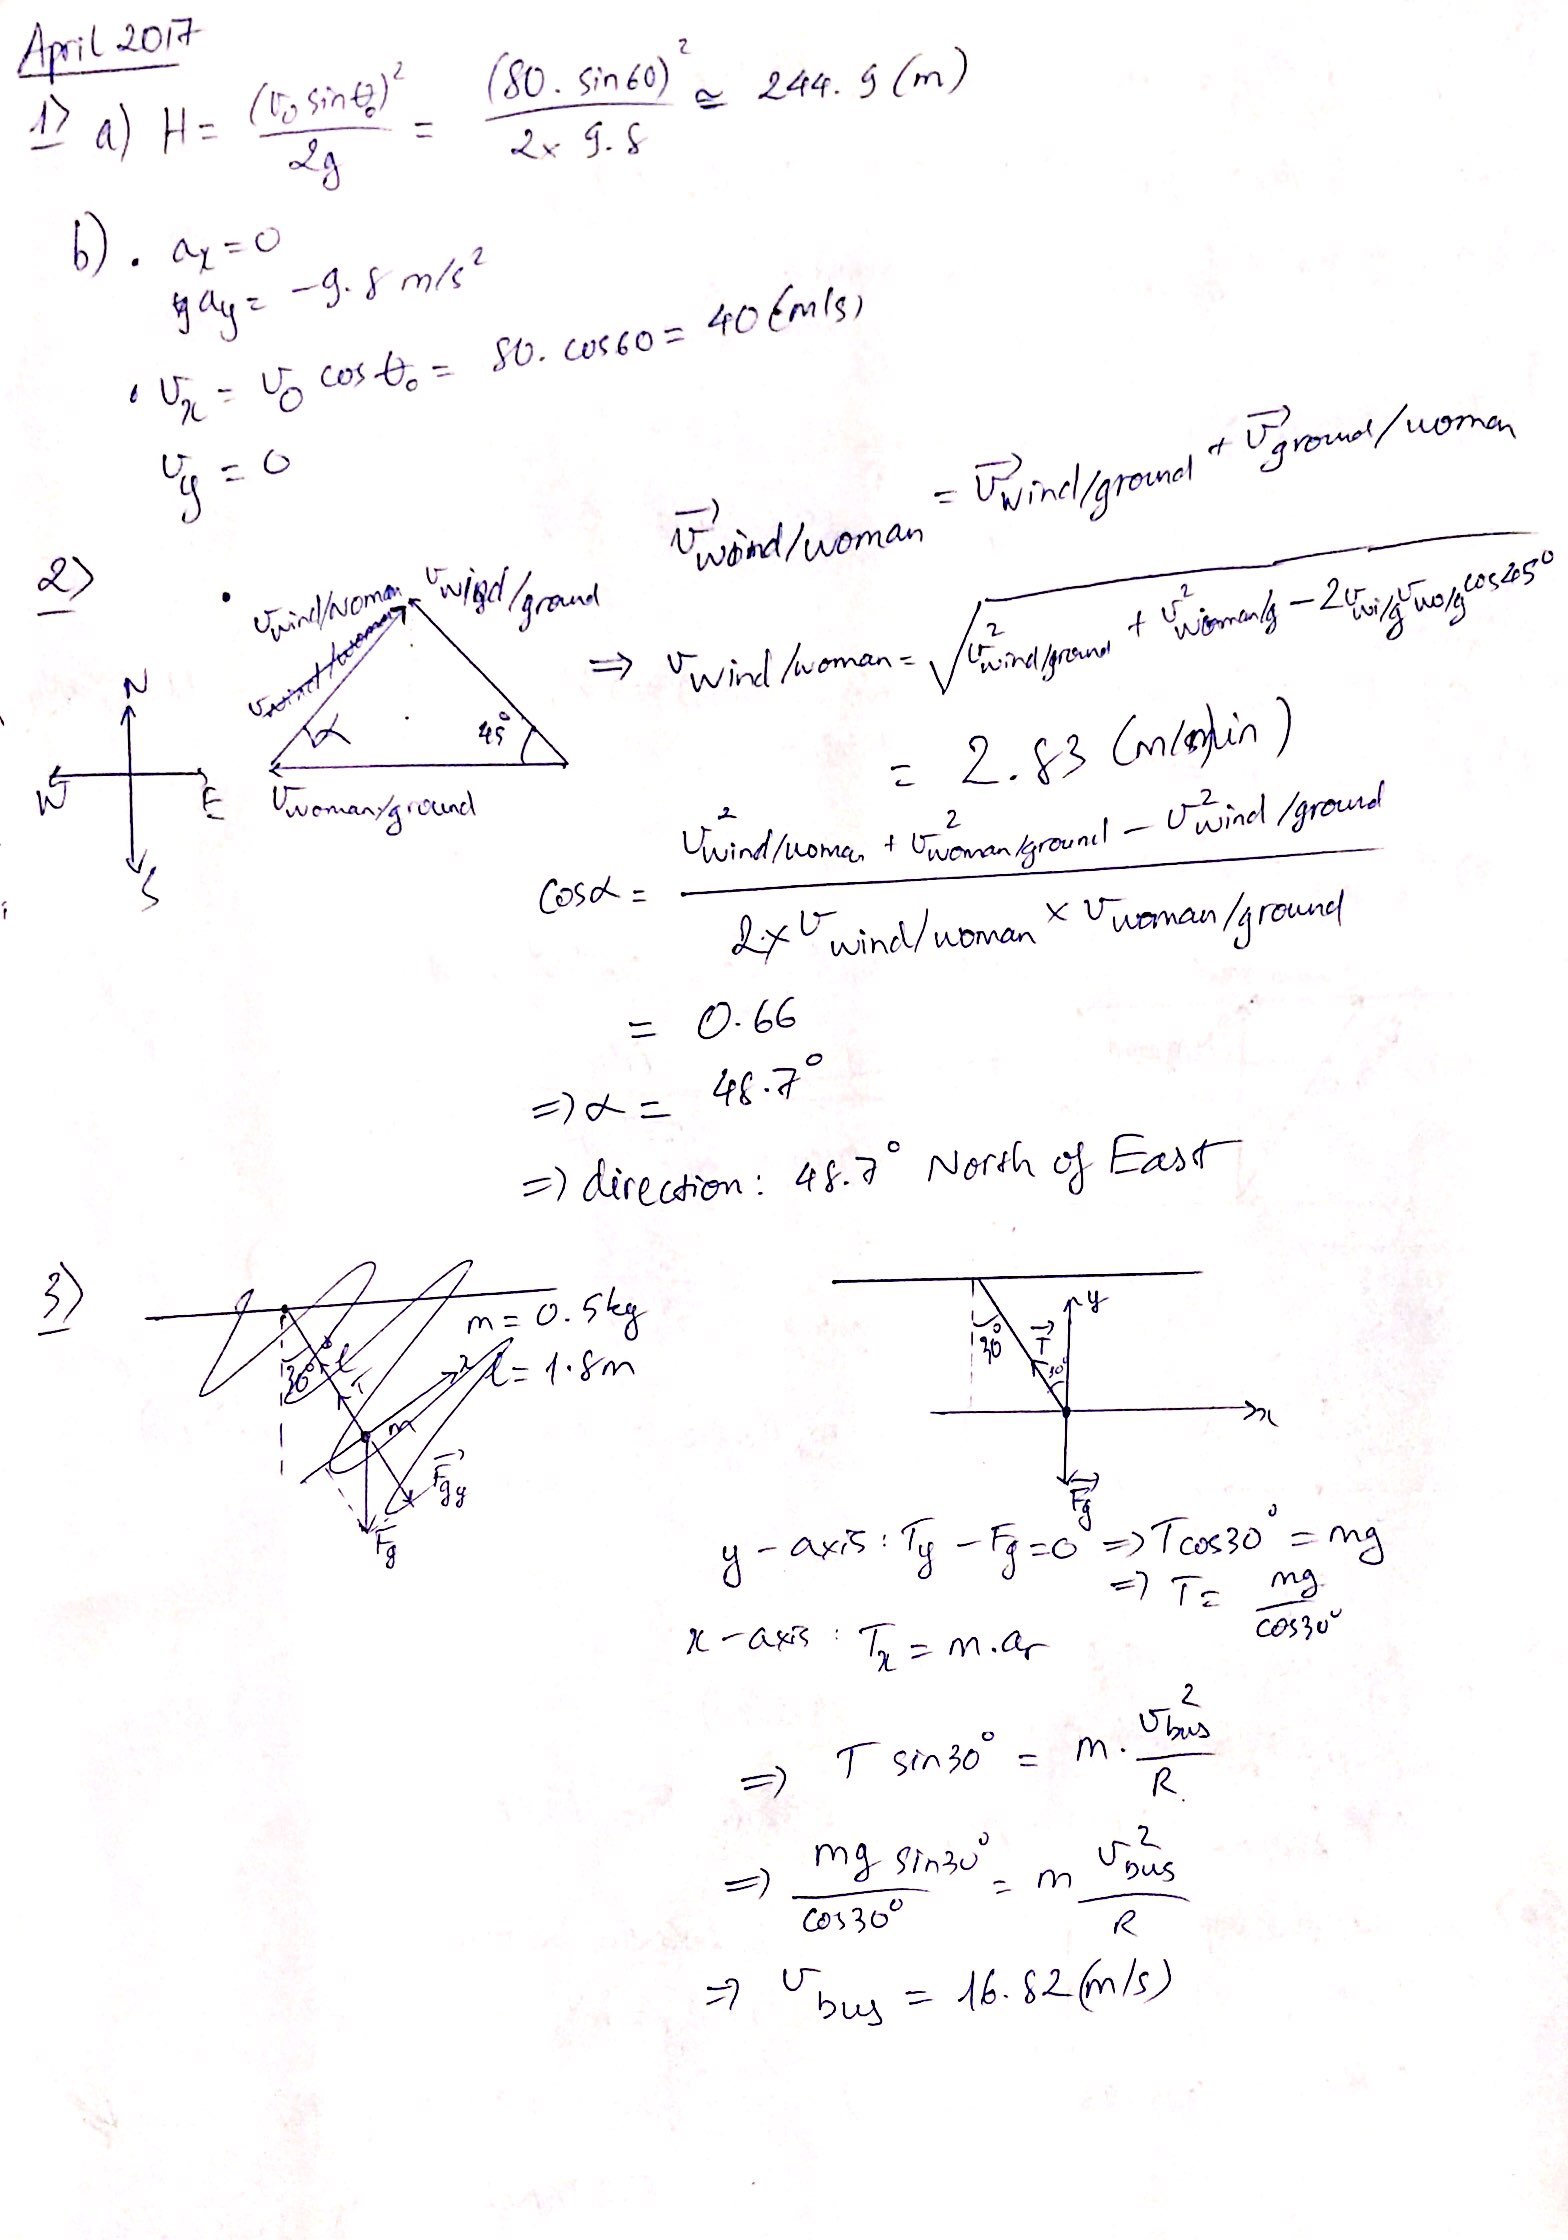 April 2017
1> a) H = (v₀ sinθ₀)² / 2g = (80. sin60)² / 2x 9.8 ≃ 244.9 (m)
b) • aₓ = 0
a_y = -9.8 m/s²
• vₓ = v₀ cosθ₀ = 80. cos60 = 40 (m/s)
v_y = 0
2>
v⃗ wind/woman = v⃗ wind/ground + v⃗ ground/woman
v wind/woman
v wind/ground
v wind/woman
α
45°
v woman/ground
N
W
E
S
=> v wind/woman = √(v² wind/ground + v² woman/g - 2 v wi/g v wo/g cos45°)
= 2.83 (m/min)
cosα = (v² wind/woman + v² woman/ground - v² wind/ground) / (2 x v wind/woman x v woman/ground)
= 0.66
=> α = 48.7°
=> direction: 48.7° North of East
3>
m = 0.5kg
l = 1.8m
30°
l
T
m
F⃗gy
F⃗g
30°
T⃗
30°
y
x
F⃗g
y - axis : Ty - Fg = 0 => T cos30° = mg
=> T = mg / cos30°
x - axis : Tx = m.ar
=> T sin30° = m. v² bus / R
=> mg sin30° / cos30° = m v² bus / R
=> v bus = 16.82 (m/s)